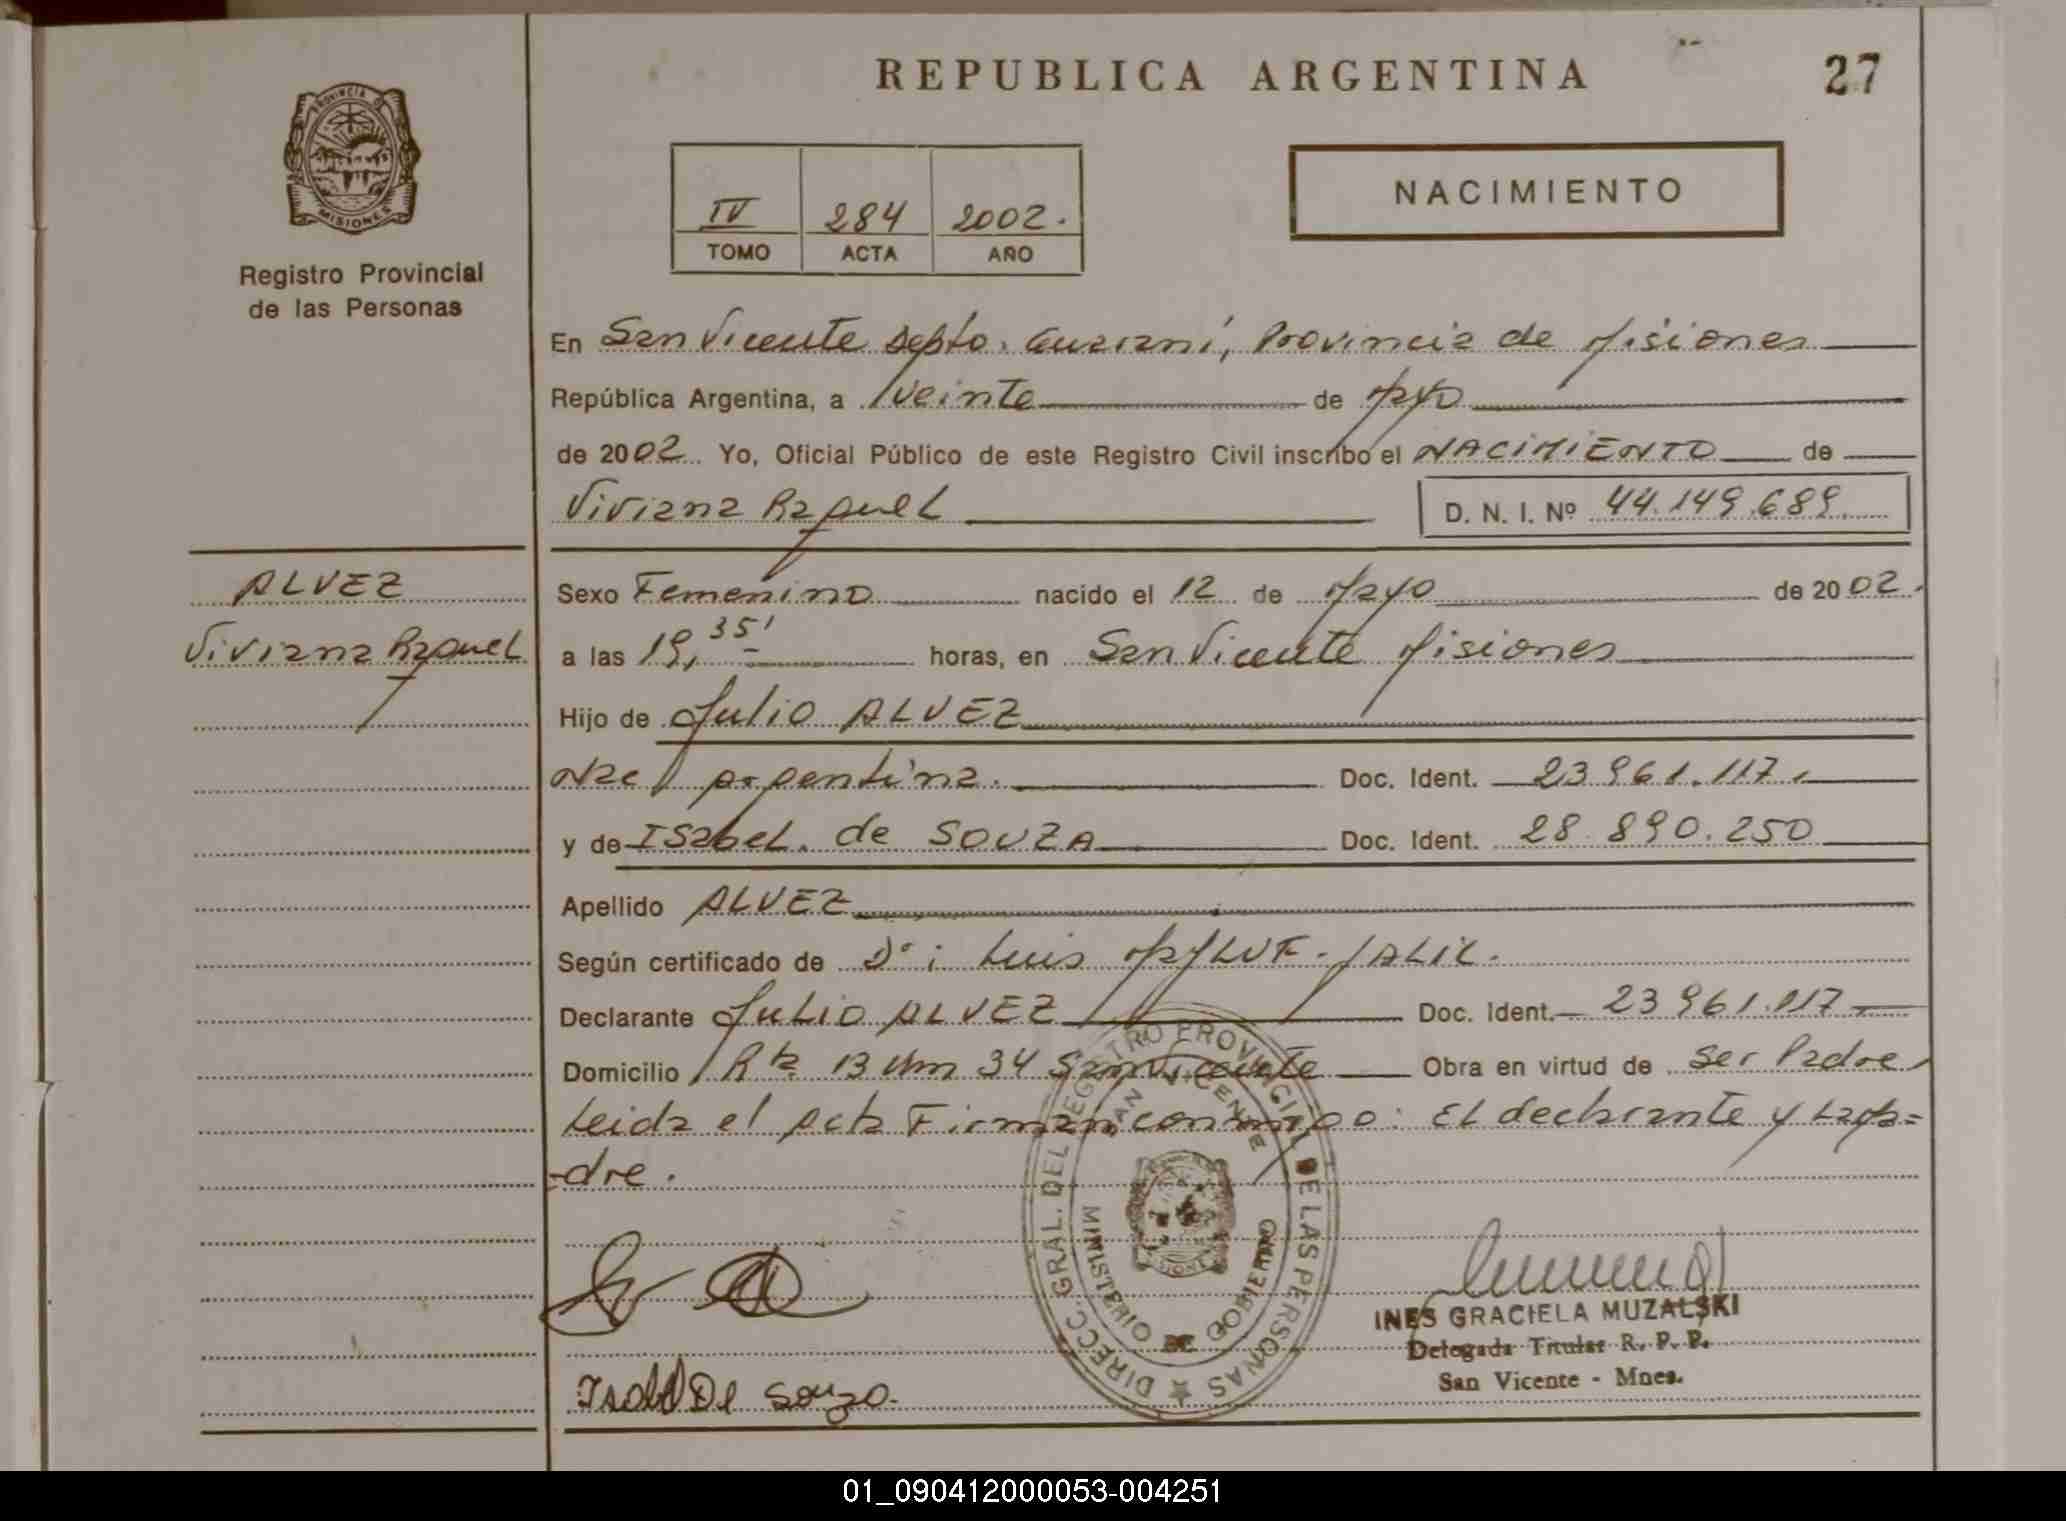 REPUBLICA ARGENTINA
27
PROVINCIA DE
MISIONES
Registro Provincial
de las Personas
NACIMIENTO
IV 284 2002.
TOMO ACTA AÑO
En San Vicente Depto. Guaraní, Provincia de Misiones
República Argentina, a Veinte de Mayo
de 2002. Yo, Oficial Público de este Registro Civil inscribo el NACIMIENTO de
Viviana Raquel D. N. I. Nº 44.149.689
ALVEZ
Viviana Raquel
Sexo Femenino nacido el 12 de Mayo de 2002.
a las 19,35' horas, en San Vicente Misiones
Hijo de Julio ALVEZ
Nac argentina. Doc. Ident. 23961.117.
y de Isabel. de SOUZA Doc. Ident. 28.890.250
Apellido ALVEZ
Según certificado de Dr: Luis
Declarante Julio ALVEZ Doc. Ident. 23961.117
Domicilio Rta 13 Km 34 San Vicente Obra en virtud de Ser Padre
Leida el Acta Firman conmigo: EL declarante y La Ma=
=dre.
DIRECC. GRAL. DEL REGISTRO PROVINCIAL DE LAS PERSONAS
SAN VICENTE
MINISTERIO DE GOBIERNO
MISIONES
INES GRACIELA MUZALSKI
Delegada Titular R. P. P.
San Vicente - Mnes.
De Souza.
01_090412000053-004251